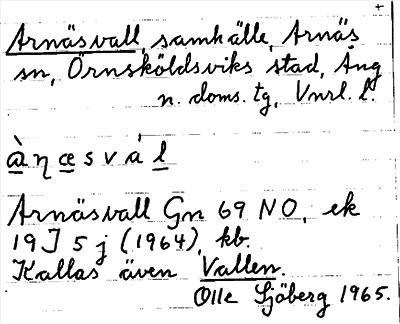 Arnäsvall, samhälle, Arnäs
sn, Örnsköldsviks stad, Ång
n. doms. tg, Vnrl. l.
àŋæsvál
Arnäsvall Gn 69 NO, ek
19J 5j (1964), kb.
Kallas även Vallen.
Olle Sjöberg 1965.